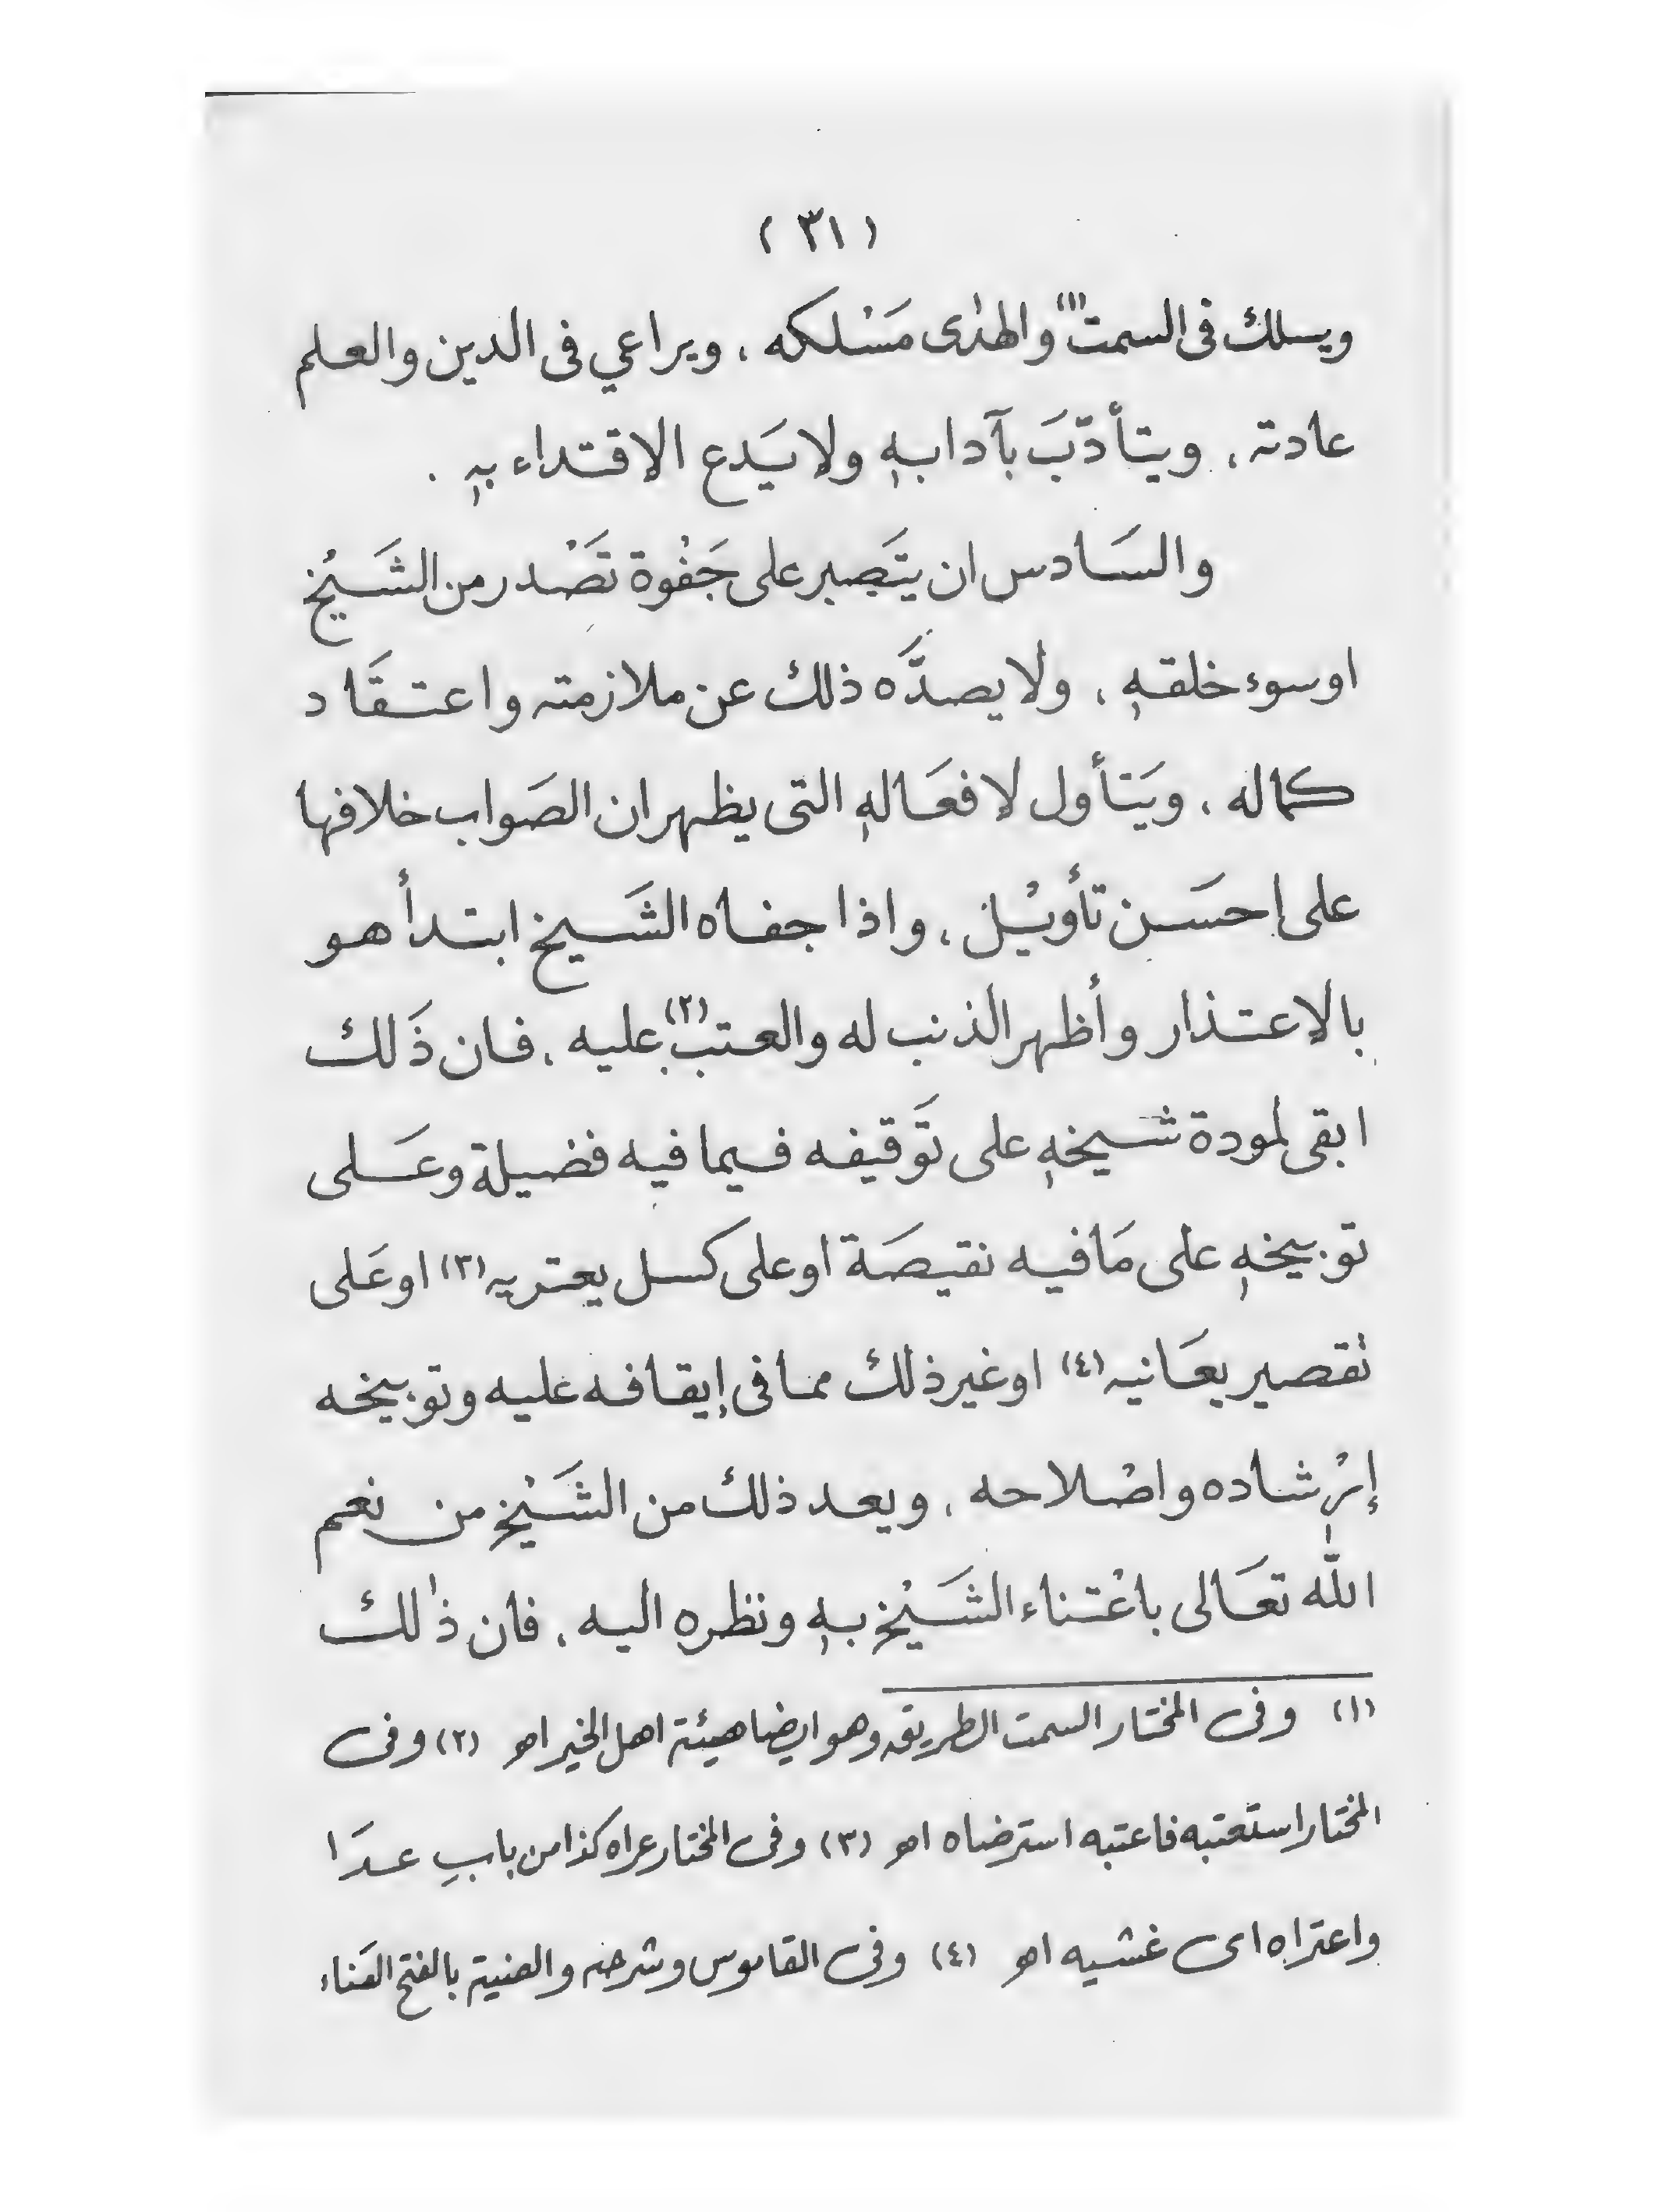 ( ٣١ )
ويسلك فى السمت(١) والهدٰى مَسْلكه ، ويراعي فى الدين والعلم
عادته ، ويتأدّبَ بآدابهٖ ولا يَدع الاقتداء بهٖ .
والسَادس ان يتَصبر على جَفْوة تَصْدر من الشَيْخ
اوسوء خلقهٖ ، ولا يصدَّه ذلك عن ملازمته واعتقَاد
كماله ، ويَتأول لافعَالهٖ التى يظهر ان الصَواب خلافها
على احسَن تأويْل ، واذا جفاه الشَيخ ابتدأ هو
بالاعتذار وأظهر الذنب له والعتب(٢) عليه ، فان ذَلك
ابقى لمودة شيخهٖ على تَوقيفه فيما فيه فضيلة وعَلى
توبيخهٖ على مَا فيه نقيصَة او على كسل يعتريه(٣) او عَلى
تقصير يعَانيه(٤) او غير ذلك مما فى إيقافه عليه وتوبيخه
إرْشاده واصْلاحه ، ويعد ذلك من الشَيْخ من نعم
اللّٰه تعَالى باعْتناء الشَيْخ بهٖ ونظره اليه ، فان ذٰلك
(١) وفى المختار السمت الطريق وهو ايضا هيئة اهل الخير اهـ (٢) وفى
المختار استَعتبه فاعتبه استرضاه اهـ (٣) وفى المختار عراه كذا من بابِ عدَا
واعتراه اى غشيه اهـ (٤) وفى القاموس وشرحه والعنية بالفتح العَناء